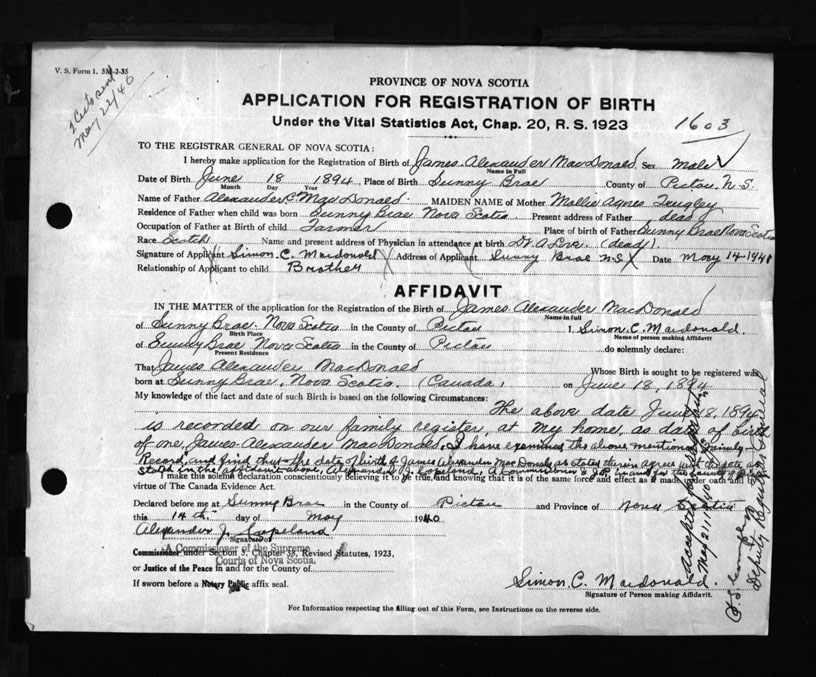 V. S. Form 1. 5M-2-35
May 22/40
PROVINCE OF NOVA SCOTIA
APPLICATION FOR REGISTRATION OF BIRTH
Under the Vital Statistics Act, Chap. 20, R. S. 1923
1603
TO THE REGISTRAR GENERAL OF NOVA SCOTIA:
I hereby make application for the Registration of Birth of James Alexander MacDonald Sex Male
Name in Full
Date of Birth June 18 1894, Place of Birth Sunny Brae County of Pictou N.S.
Month Day Year
Name of Father Alexander C. MacDonald. MAIDEN NAME of Mother Mallie Agnes
Residence of Father when child was born Sunny Brae Nova Scotia Present address of Father dead
Occupation of Father at Birth of child Farmer Place of birth of Father Sunny Brae Nova Scotia
Race Scotch Name and present address of Physician in attendance at birth Dr. A. Love. (dead).
Signature of Applicant Simon C. Macdonald Address of Applicant Sunny Brae N.S. Date May 14 1940
Relationship of Applicant to child Brother
AFFIDAVIT
IN THE MATTER of the application for the Registration of the Birth of James Alexander MacDonald
Name in full
of Sunny Brae. Nova Scotia in the County of Pictou I, Simon. C. Macdonald.
Birth Place Name of person making Affidavit
of Sunny Brae Nova Scotia in the County of Pictou do solemnly declare:
Present Residence
That James Alexander MacDonald Whose Birth is sought to be registered was
born at Sunny Brae, Nova Scotia. (Canada) on June 18, 1894
My knowledge of the fact and date of such Birth is based on the following Circumstances:
The above date June 18, 1894
is recorded on our family register, at my home, as date of birth
of one, James Alexander MacDonald. I have examined the above mentioned Family
Record, and find that the date of birth of James Alexander MacDonald as stated therein agree with the date as
stated in the affidavit above, Alexander J. Copeland, A Commissioner & J.P. in and for the County of
I make this solemn declaration conscientiously believing it to be true, and knowing that it is of the same force and effect as if made under oath and by
virtue of The Canada Evidence Act.
Declared before me at Sunny Brae in the County of Pictou and Province of Nova Scotia
this 14th. day of May 1940
Alexander J. Copeland
Signature of
Commissioner under Section 3, Chapter 38, Revised Statutes, 1923,
A Commissioner of the Supreme
Courts of Nova Scotia.
or Justice of the Peace in and for the County of
If sworn before a Notary Public affix seal.
Simon. C. Macdonald.
Signature of Person making Affidavit.
For Information respecting the filling out of this Form, see Instructions on the reverse side.
Accepted for
May 21/1940
Deputy Registrar General